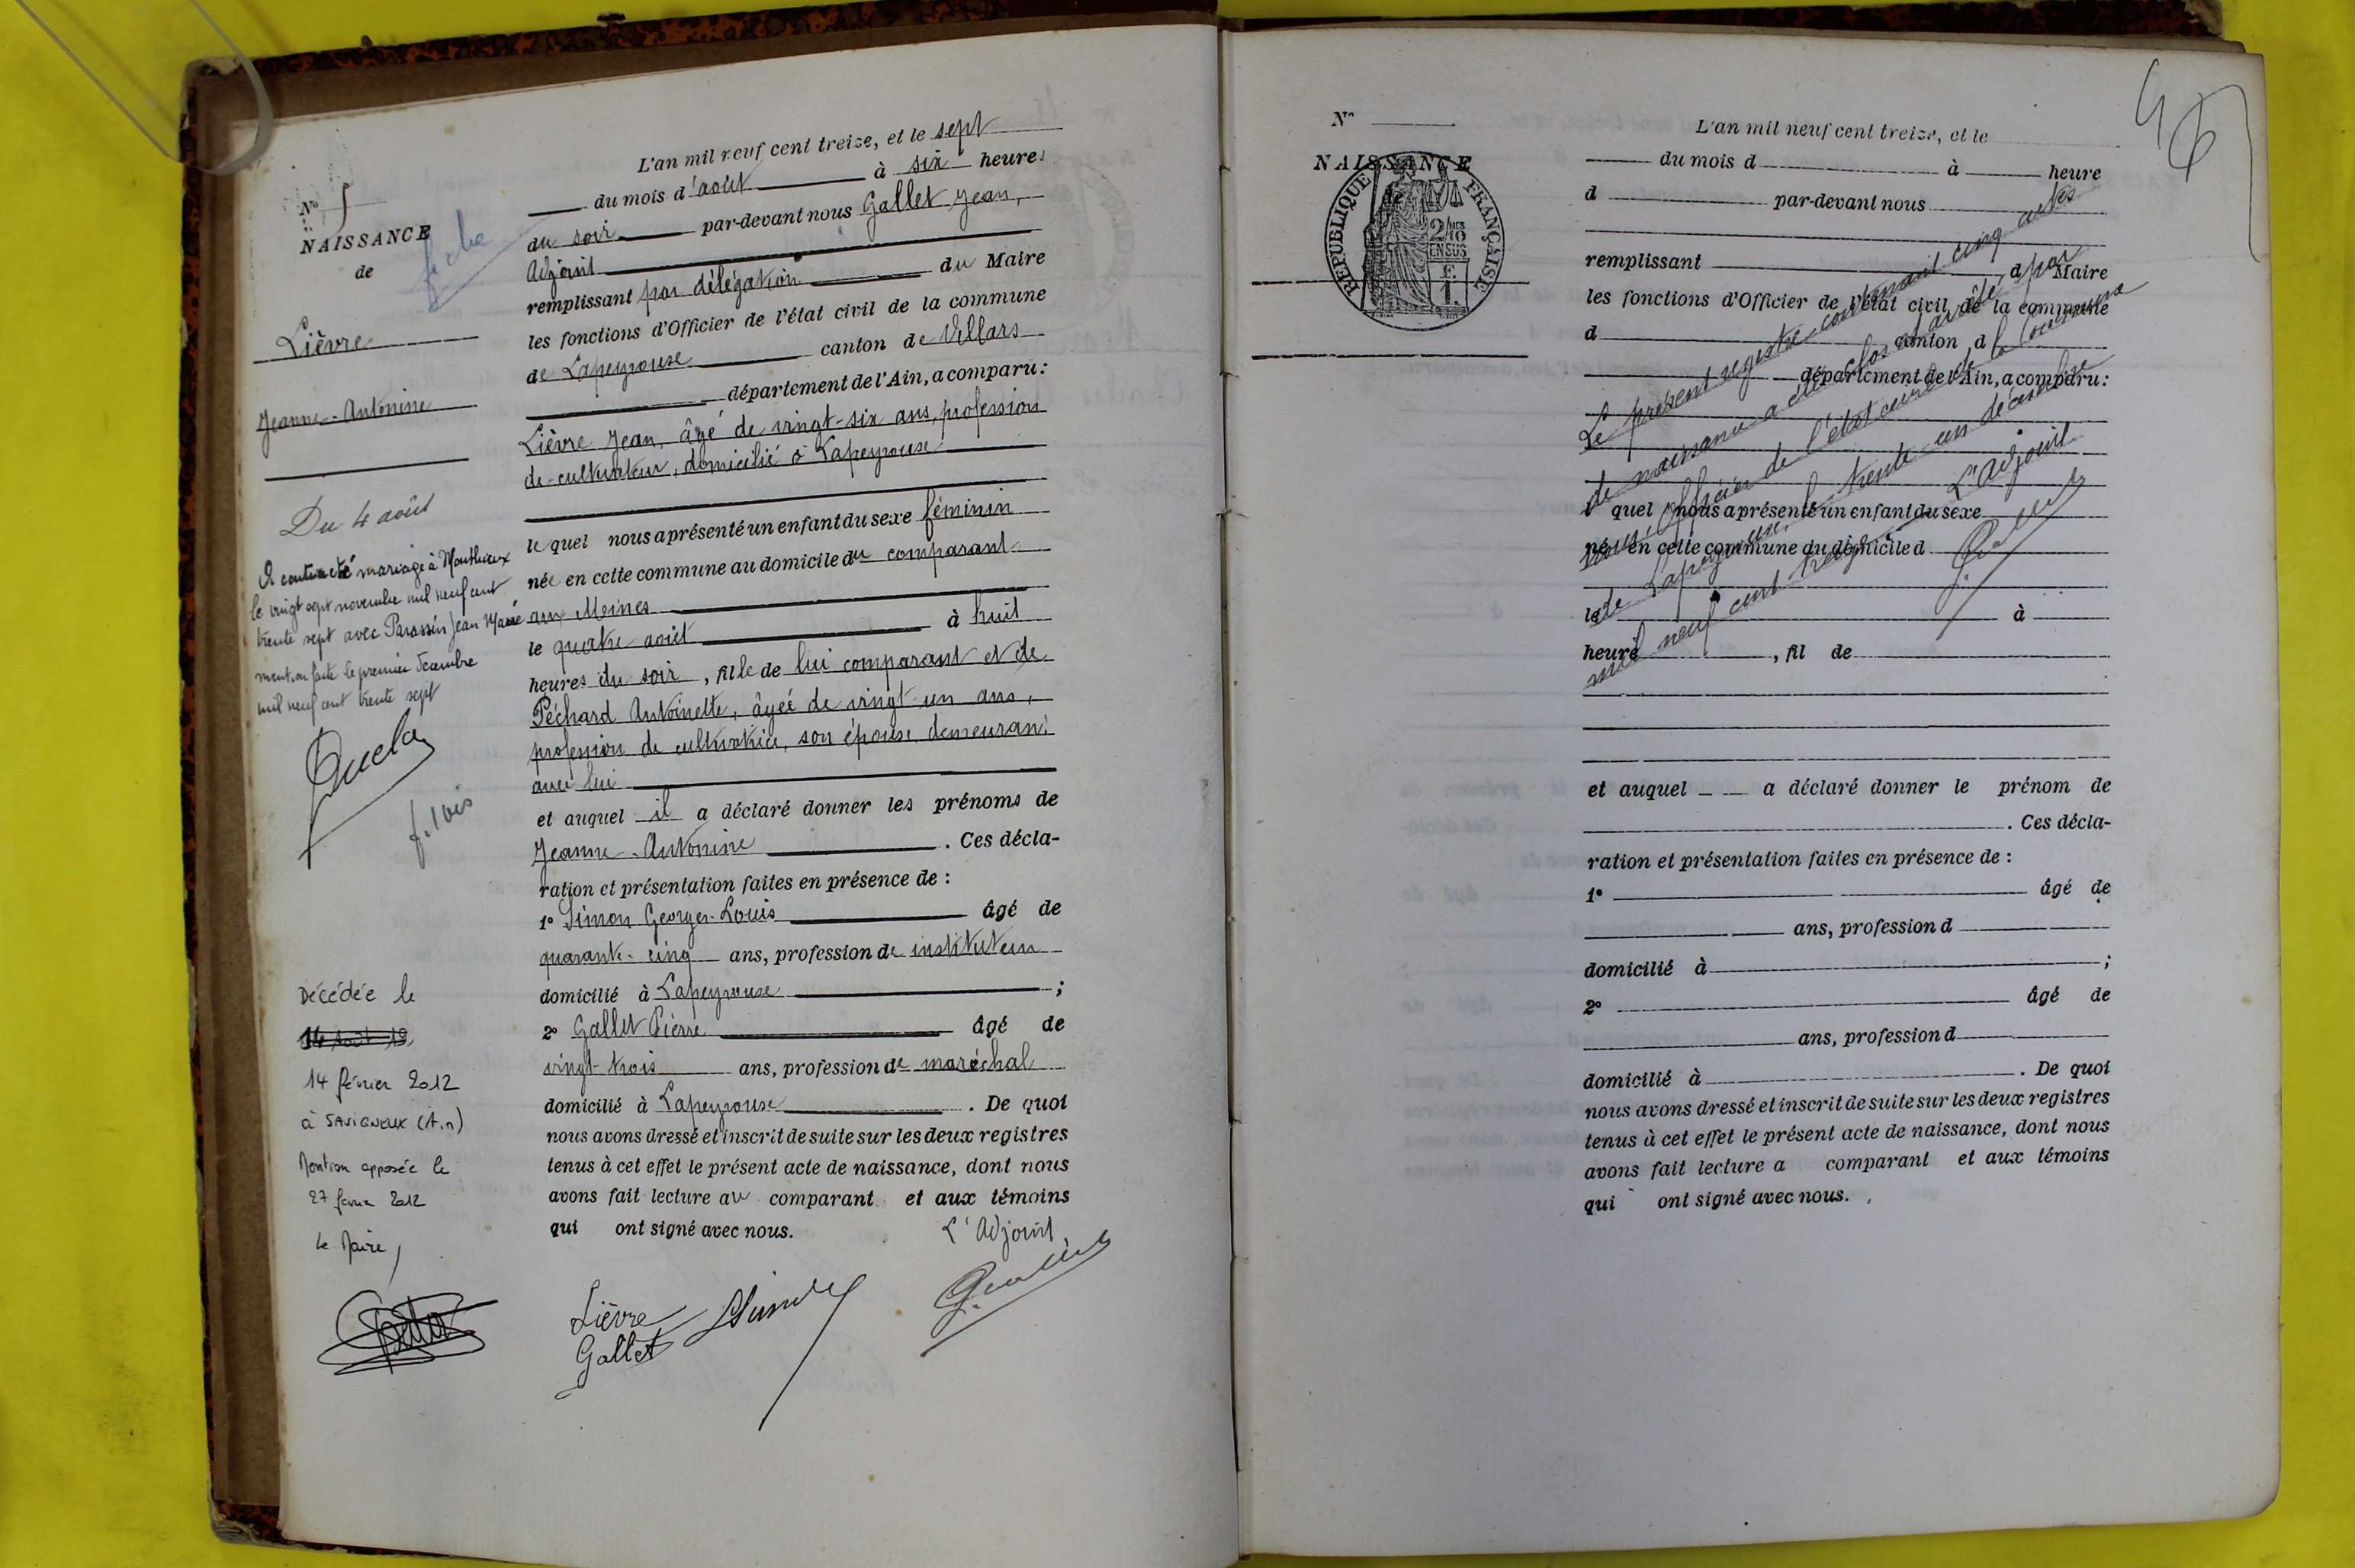 N° 5
NAISSANCE
de
fiche
Lièvre
Jeanne-Antonine
Du 4 août
A contracté mariage à Monthieux
le vingt sept novembre mil neuf cent
trente sept avec Parassin Jean Marie
mention faite le premier décembre
mil neuf cent trente sept
Décédée le
14 août 19
14 février 2012
à SAVIGNEUX (Ain)
Mention apposée le
27 février 2012
Le Maire,
L'an mil neuf cent treize, et le sept
du mois d'août à six heures
du soir par-devant nous Gallet Jean,
Adjoint
remplissant par délégation du Maire
les fonctions d'Officier de l'état civil de la commune
de Lapeyrouse canton de Villars
département de l'Ain, a comparu :
Lièvre Jean, âgé de vingt-six ans, profession
de cultivateur, domicilié à Lapeyrouse
le quel nous a présenté un enfant du sexe féminin
née en cette commune au domicile du comparant
aux Moines
le quatre août à huit
heures du soir, fille de lui comparant et de
Péchard Antoinette, âgée de vingt un ans,
profession de cultivatrice, son épouse demeurant
avec lui
et auquel il a déclaré donner les prénoms de
Jeanne-Antonine . Ces décla-
ration et présentation faites en présence de :
1° Simon Georges-Louis âgé de
quarante-cinq ans, profession de instituteur
domicilié à Lapeyrouse ;
2° Gallet Pierre âgé de
vingt-trois ans, profession de maréchal
domicilié à Lapeyrouse . De quoi
nous avons dressé et inscrit de suite sur les deux registres
tenus à cet effet le présent acte de naissance, dont nous
avons fait lecture au comparant et aux témoins
qui ont signé avec nous.
L'Adjoint
Lièvre
Gallet
N°
NAISSANCE
RÉPUBLIQUE FRANÇAISE
2/10
EN SUS
L'an mil neuf cent treize, et le
du mois d à heure
d par-devant nous
remplissant d Maire
les fonctions d'Officier de l'état civil de la commune
d canton d
département de l'Ain, a comparu :
l quel nous a présenté un enfant du sexe
né en cette commune au domicile d
le à
heure , fil de
et auquel a déclaré donner le prénom de
. Ces décla-
ration et présentation faites en présence de :
1° âgé de
ans, profession d
domicilié à ;
2° âgé de
ans, profession d
domicilié à . De quoi
nous avons dressé et inscrit de suite sur les deux registres
tenus à cet effet le présent acte de naissance, dont nous
avons fait lecture a comparant et aux témoins
qui ont signé avec nous.
Le présent registre contenant cinq actes
de naissance a été clos et arrêté par
nous Officier de l'état civil de la Commune
de Lapeyrouse, le trente un décembre
mil neuf cent treize
L'Adjoint